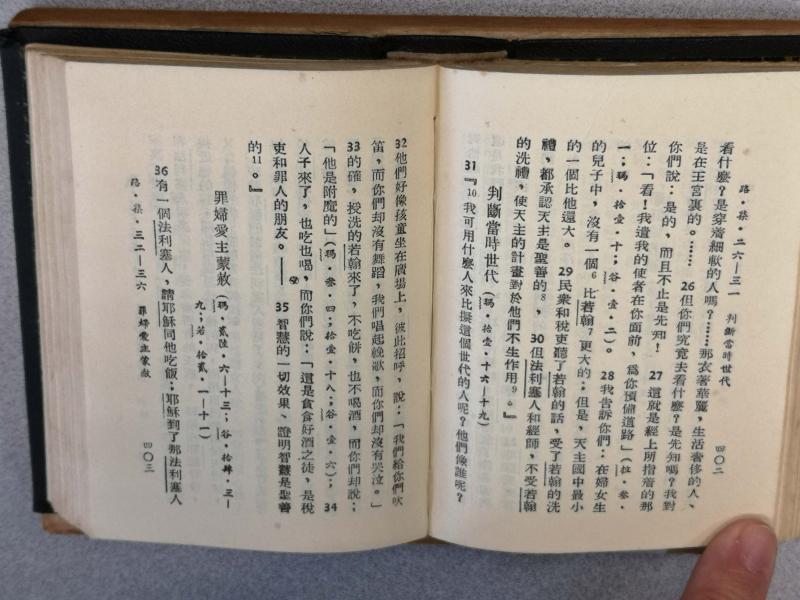 路·柒·二六—三一　判斷當時世代　四〇二
看什麼？是穿着細軟的人嗎？……那衣著華麗，生活奢侈的人、
是在王宮裏的。…… 26但你們究竟去看什麼？是先知嗎？我對
你們說：是的，而且不止是先知！ 27這就是經上所指着的那
位：「看！我遣我的使者在你面前，爲你預備道路」（拉·叁·
一；瑪·拾壹·十；谷·壹·二）。 28我告訴你們：在婦女生
的兒子中，沒有一個6比若翰7更大的；但是，天主國中最小
的一個比他還大。 29民衆和稅吏聽了若翰的話，受了若翰的洗
禮，都承認天主是聖善的8， 30但法利塞人和經師，不受若翰
的洗禮，使天主的計畫對於他們不生作用9。』
判斷當時世代（瑪·拾壹·十六—十九）
31『10我可用什麼人來比擬這個世代的人呢？他們像誰呢？
32他們好像孩童坐在廣場上，彼此招呼，說：「我們給你們吹
笛，而你們却沒有舞蹈，我們唱起輓歌，而你們却沒有哭泣。」
33的確，授洗的若翰來了，不吃餅，也不喝酒，而你們却說：
「他是附魔的」（瑪·叁·四；拾壹·十八；谷·壹·六）； 34
人子來了，也吃也喝，而你們說：「這是貪食好酒之徒，是稅
吏和罪人的朋友。」 35智慧的一切效果、證明智慧是聖善
的11。』
罪婦愛主蒙赦（瑪·貳陸·六—十三；谷·拾肆·三—
九；若·拾貳·一—十一）
36有一個法利塞人，請耶穌同他吃飯；耶穌到了那法利塞人
路·柒·三二—三六　罪婦愛主蒙赦　四〇三